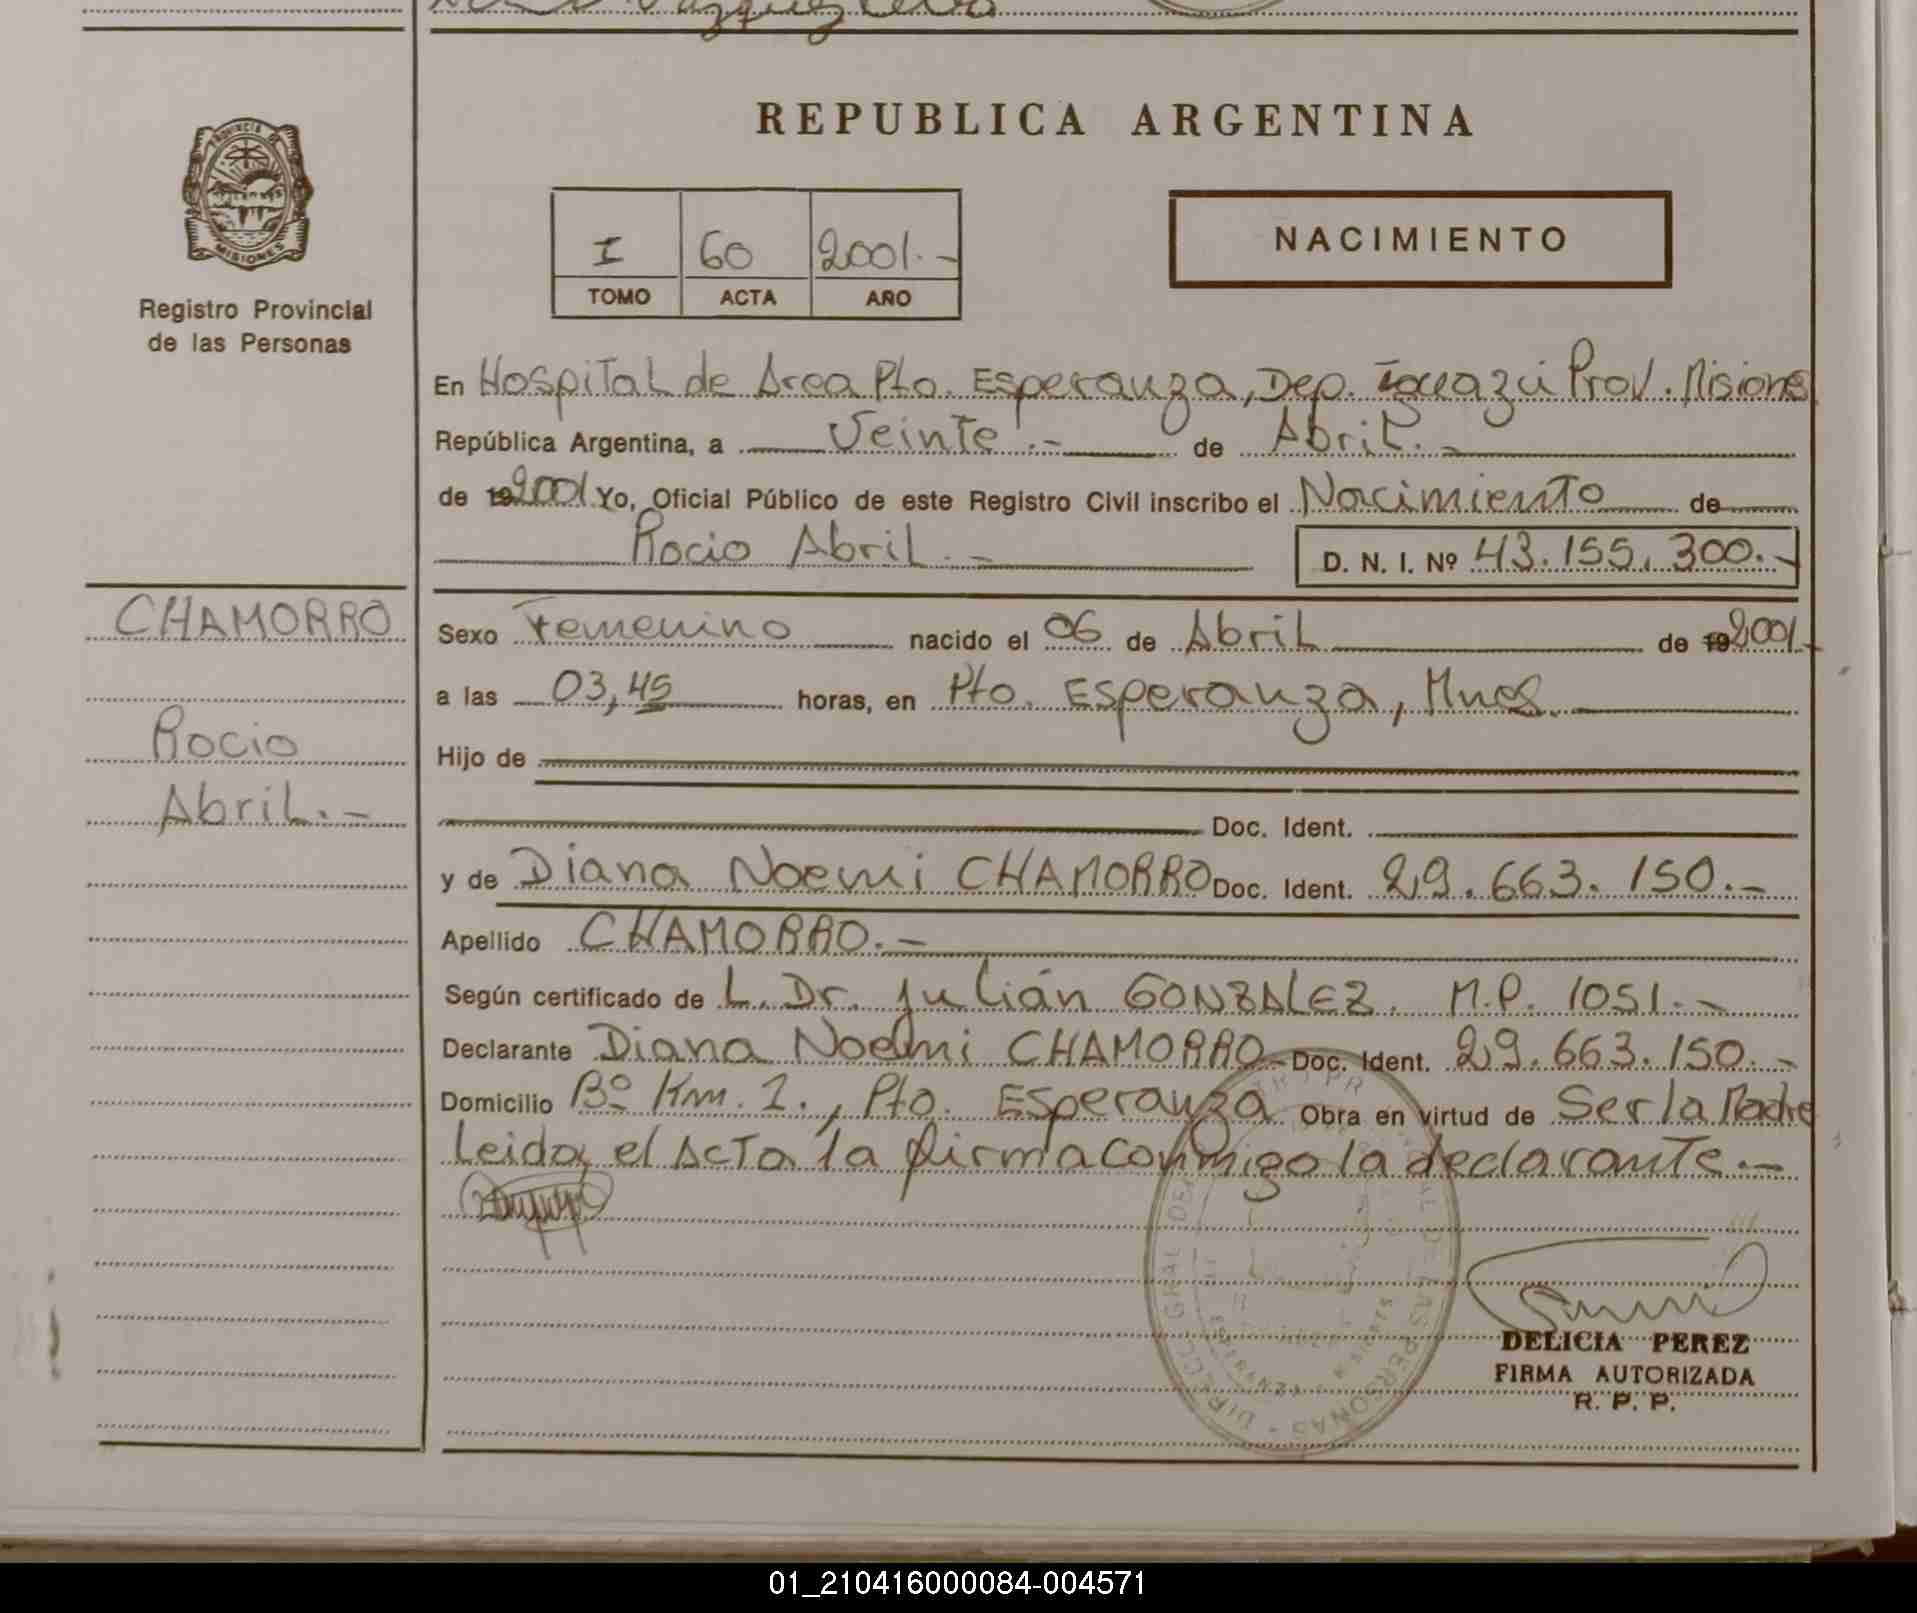 REPUBLICA ARGENTINA
PROVINCIA DE
MISIONES
Registro Provincial
de las Personas
I 60 2001.-
TOMO ACTA AÑO
NACIMIENTO
En Hospital de Area Pto. Esperanza, Dep. Iguazú Prov. Misiones
República Argentina, a Veinte.- de Abril.-
de 192001 Yo, Oficial Público de este Registro Civil inscribo el Nacimiento de
Rocio Abril.- D. N. I. Nº 43.155.300.-
CHAMORRO
Rocio
Abril.-
Sexo Femenino nacido el 06 de Abril de 192001.-
a las 03,45 horas, en Pto. Esperanza, Mnes.
Hijo de
Doc. Ident.
y de Diana Noemi CHAMORRO Doc. Ident. 29.663.150.-
Apellido CHAMORRO.-
Según certificado de L. Dr. Julián GONZALEZ. M.P. 1051.-
Declarante Diana Noemi CHAMORRO Doc. Ident. 29.663.150.-
Domicilio Bº Km. 1., Pto. Esperanza Obra en virtud de Ser la Madre
Leida el Acta la firma conmigo la declarante.-
DELICIA PEREZ
FIRMA AUTORIZADA
R. P. P.
01_210416000084-004571